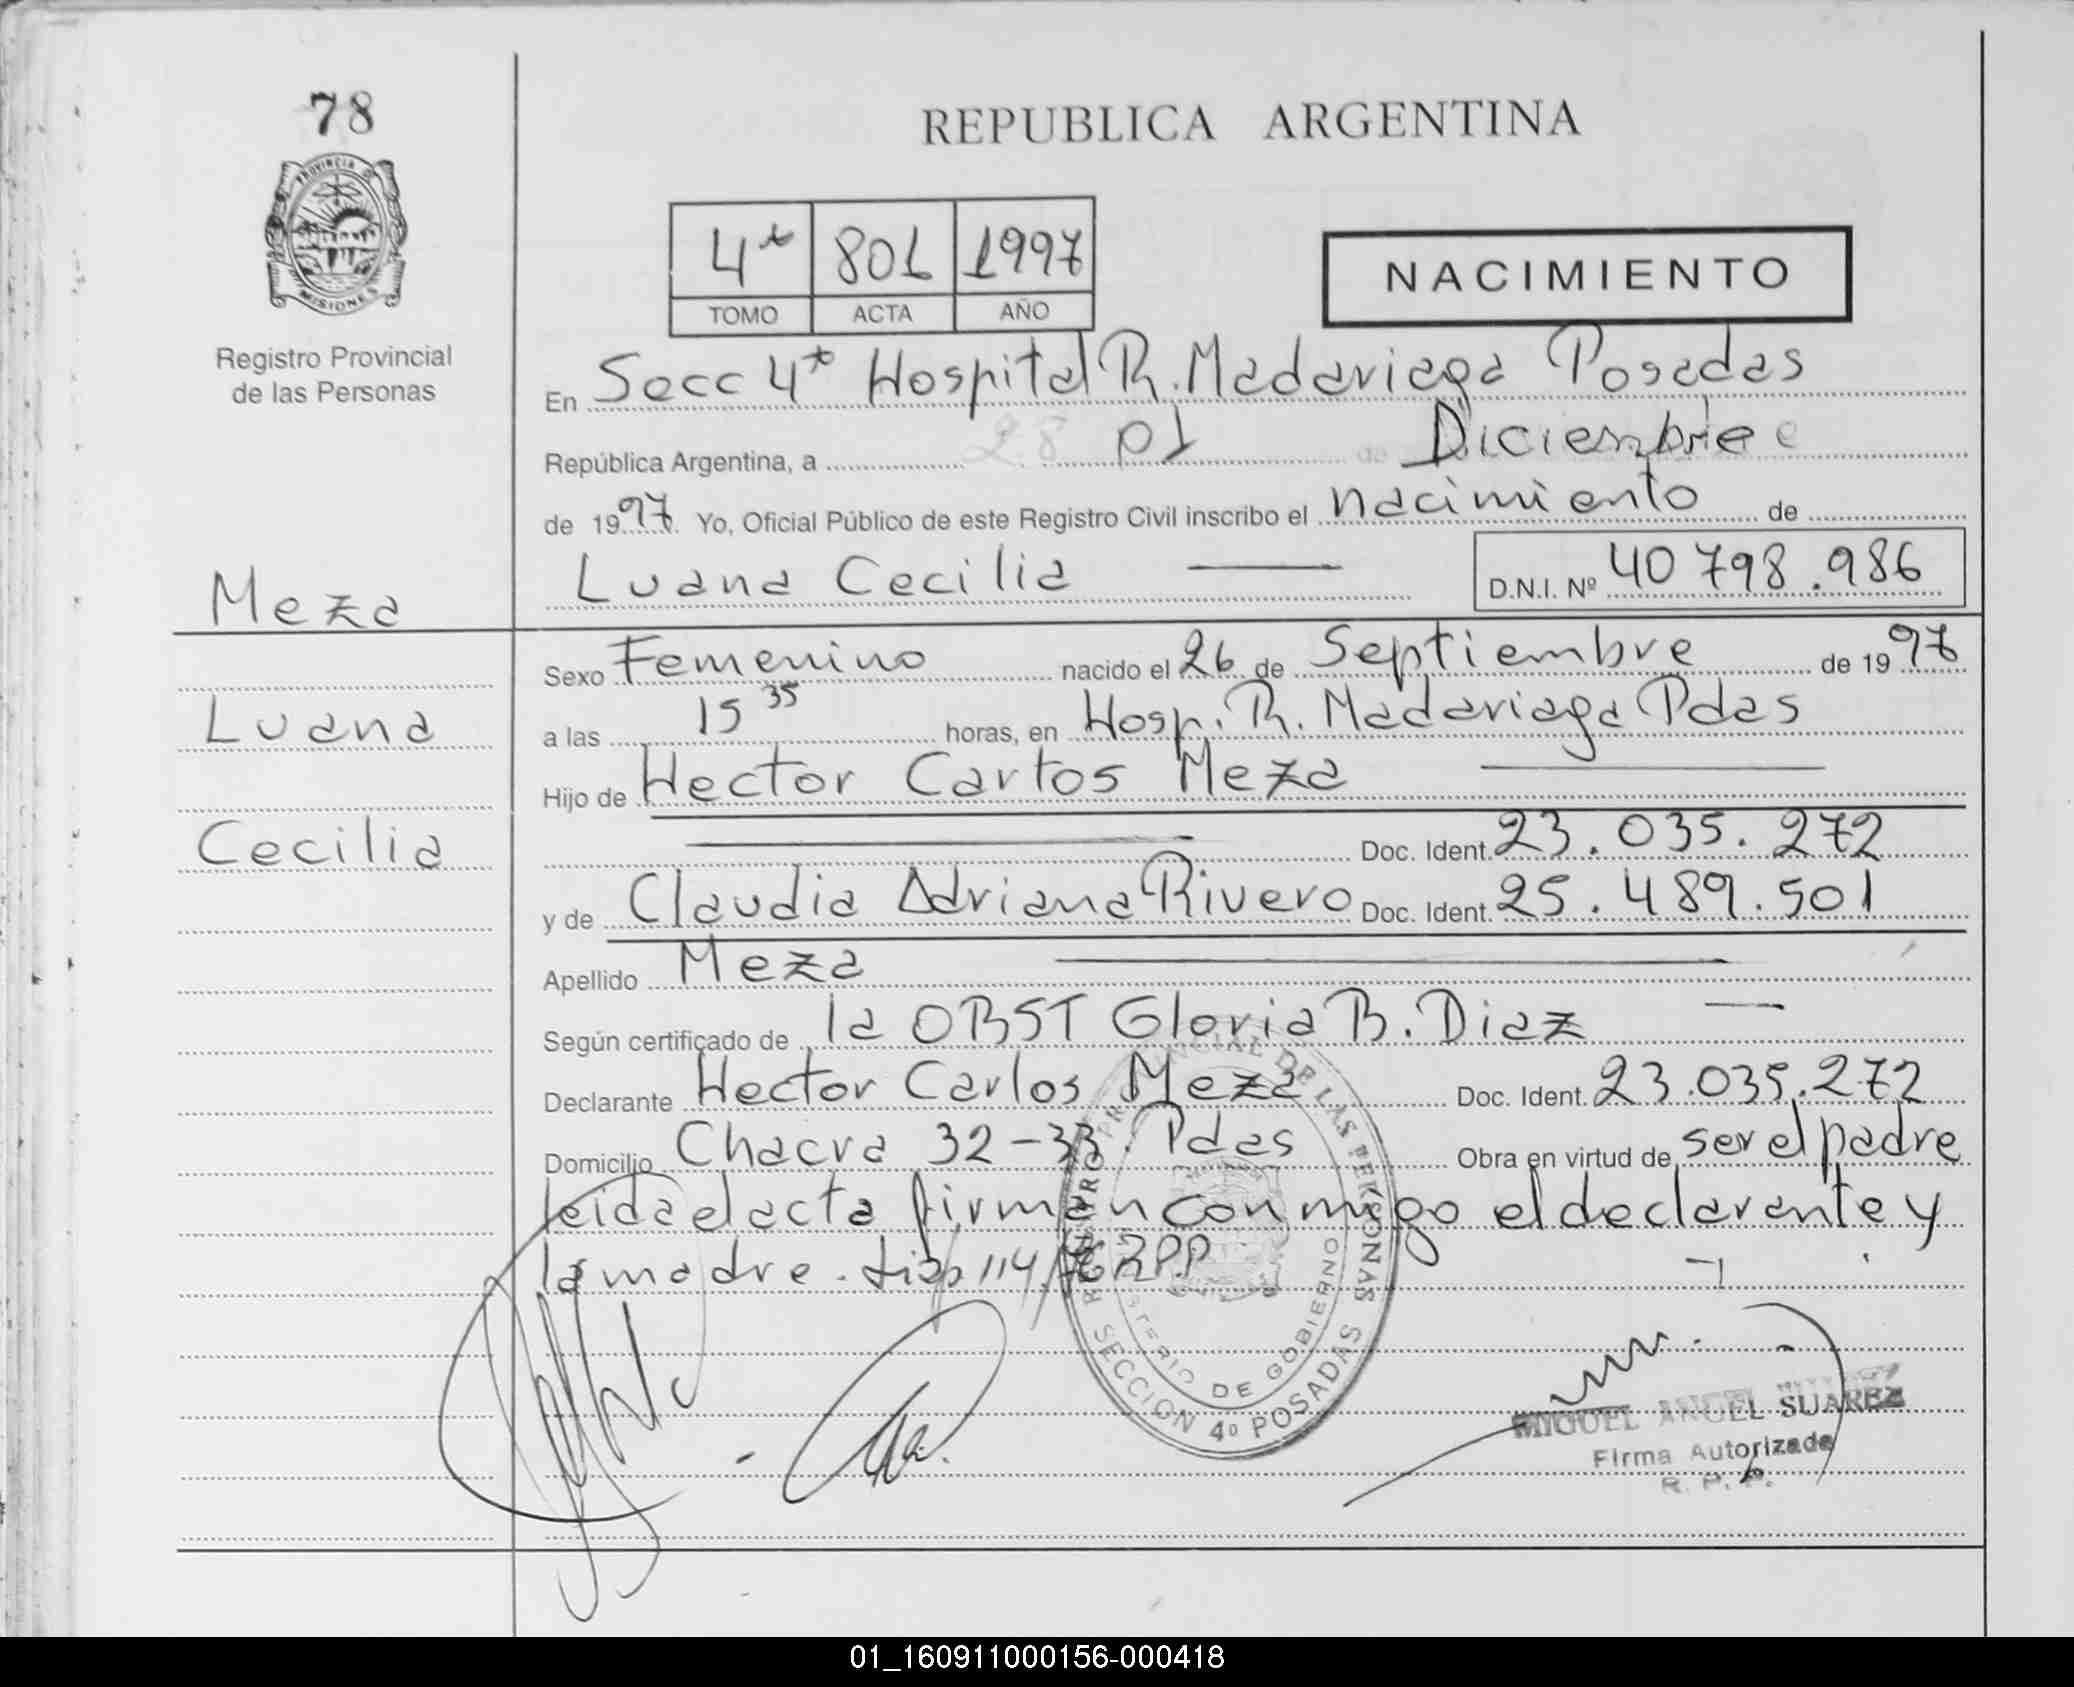 78
REPUBLICA ARGENTINA
PROVINCIA DE
MISIONES
Registro Provincial
de las Personas
4ta 801 1997
TOMO ACTA AÑO
NACIMIENTO
En Secc 4ta Hospital R. Madariaga Posadas
República Argentina, a 28 01 de Diciembre
de 1997. Yo, Oficial Público de este Registro Civil inscribo el nacimiento de
Luana Cecilia D.N.I. Nº 40 798.986
Meza
Luana
Cecilia
Sexo Femenino nacido el 26 de Septiembre de 1997
a las 15 35 horas, en Hosp. R. Madariaga Pdas
Hijo de Hector Carlos Meza
Doc. Ident. 23.035.272
y de Claudia Adriana Rivero Doc. Ident. 25.489.501
Apellido Meza
Según certificado de la OBST Gloria B. Diaz
Declarante Hector Carlos Meza Doc. Ident. 23.035.272
Domicilio Chacra 32-33. Pdas Obra en virtud de ser el padre
leida el acta firman conmigo el declarante y
la madre. disp 114/96 RPP
REGISTRO PROVINCIAL DE LAS PERSONAS
MINISTERIO DE GOBIERNO
SECCION 4º POSADAS
MIGUEL ANGEL SUAREZ
Firma Autorizada
R. P. P.
01_160911000156-000418